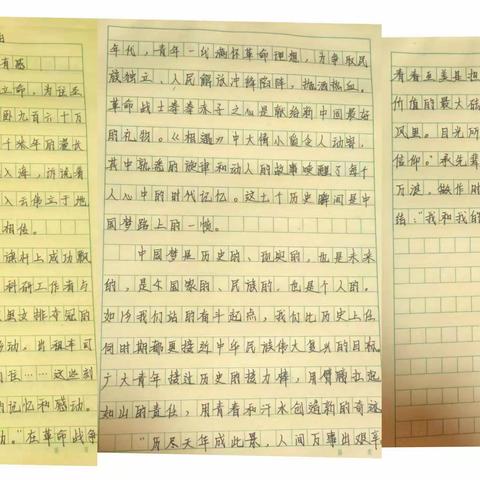 有感
九百六十万
入海,诉说着
入云伟立于地
相信。
旗杆上成功飘
科研工作者与
女排夺冠的
动,出租车司
……这些刻
的记忆和感动。
动。”在革命战争
年代,青年一代满怀革命理想,为争取民
族独立、人民解放冲锋陷阵,抛洒热血。
革命战士拳拳赤子之心是献给新中国最好
的礼物。《相遇》中大情小爱令人动容,
其中熟悉的旋律和动人的故事唤醒了每个
人心中的时代记忆。这七个历史瞬间是中
国梦路上的一帧。
中国梦是历史的、现实的,也是未来
的,是国家的、民族的,也是个人的。
如今我们站的奋斗起点,我们比历史上任
何时期都更接近中华民族伟大复兴的目标
广大青年接过历史的接力棒,用臂膀扛起
如山的责任,用青春和汗水创造新的奇迹
“历尽天华成此景,人间万事出艰辛
看着
价值的最大
风里。目光所
信仰。”承先辈
万浪。做作时
结:“我和我的